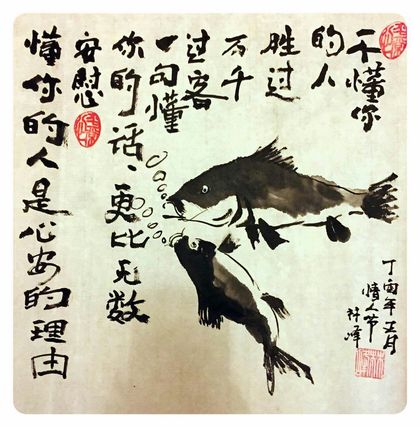 一个懂你
的人
胜过
万千
过客
一句懂
你的话、更比无数
安慰
懂你的人是心安的理由
丁酉年正月
情人节